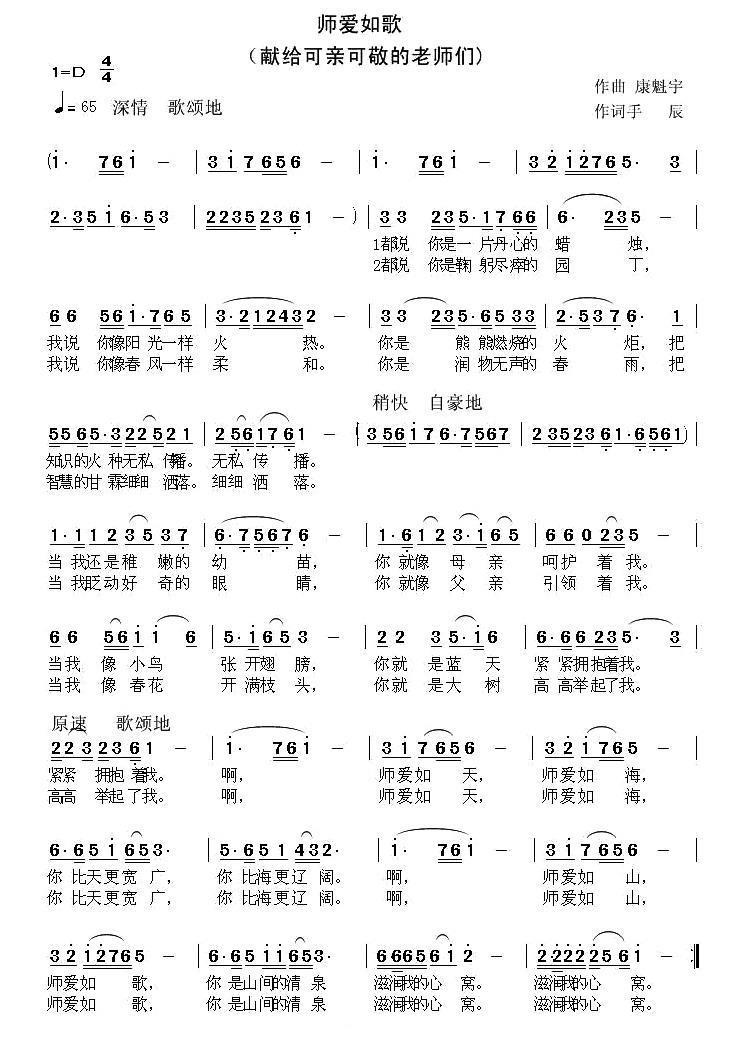 师爱如歌
（献给可亲可敬的老师们）
1=D 4/4
♩= 65 深情 歌颂地
作曲 康魁宇
作词手 辰
(i· 7 6 i － | 3 i 7 6 5 6 － | i· 7 6 i － | 3 2 i 2 7 6 5· 3 |
2·3 5 i 6·5 3 | 2 2 3 5 2 3 6 1 － ) | 3 3 2 3 5·1 7 6 6 | 6· 2 3 5 － |
1都说 你是一 片丹心的 蜡 烛，
2都说 你是鞠 躬尽瘁的 园 丁，
6 6 5 6 i·7 6 5 | 3·2 1 2 4 3 2 － | 3 3 2 3 5·6 5 3 3 | 2·5 3 7 6· 1 |
我说 你像阳 光一样 火 热。 你是 熊 熊燃烧的 火 炬，把
我说 你像春 风一样 柔 和。 你是 润 物无声的 春 雨，把
稍快 自豪地
5 5 6 5·3 2 2 5 2 1 | 2 5 6 1 7 6 1 － | (3 5 6 i 7 6·7 5 6 7 | 2 3 5 2 3 6 1·6 5 6 1) |
知识的火 种无私 传播。 无私 传 播。
智慧的甘 霖细细 洒落。 细细 洒 落。
1·1 1 2 3 5 3 7 | 6·7 5 6 7 6 － | 1·6 1 2 3·i 5 | 6 6 0 2 3 5 － |
当 我还是稚 嫩的 幼 苗， 你 就像 母 亲 呵护 着 我。
当 我眨动好 奇的 眼 睛， 你 就像 父 亲 引领 着 我。
6 6 5 6 i i 6 | 5·i 6 5 3 | 2 2 3 5·i 6 | 6·6 6 2 3 5· 3 |
当我 像 小鸟 张 开翅 膀， 你就 是蓝 天 紧 紧拥抱着我。
当我 像 春花 开 满枝 头， 你就 是大 树 高 高举起了我。
原速 歌颂地
2 2 3 2 3 6 1 － | i· 7 6 i － | 3 i 7 6 5 6 － | 3 i 7 6 5 6 － |
紧紧 拥抱 着我。 啊， 师爱如 天， 师爱如 海，
高高 举起了我。 啊， 师爱如 天， 师爱如 海，
6·6 5 i 6 5 3· | 5·6 5 1 4 3 2· | i· 7 6 i － | 3 i 7 6 5 6 － |
你 比天更宽 广， 你 比海更辽 阔。 啊， 师爱如 山，
你 比天更宽 广， 你 比海更辽 阔。 啊， 师爱如 山，
3 2 i 2 7 6 5 － | 6·6 5 i i 6 5 3· | 6 6 6 5 6 i 2 － | 2·2 2 2 5 6 i － :‖
师爱如 歌， 你 是山间的清 泉 滋润我的心 窝。 滋润我的心 窝。
师爱如 歌， 你 是山间的清 泉 滋润我的心 窝。 滋润我的心 窝。